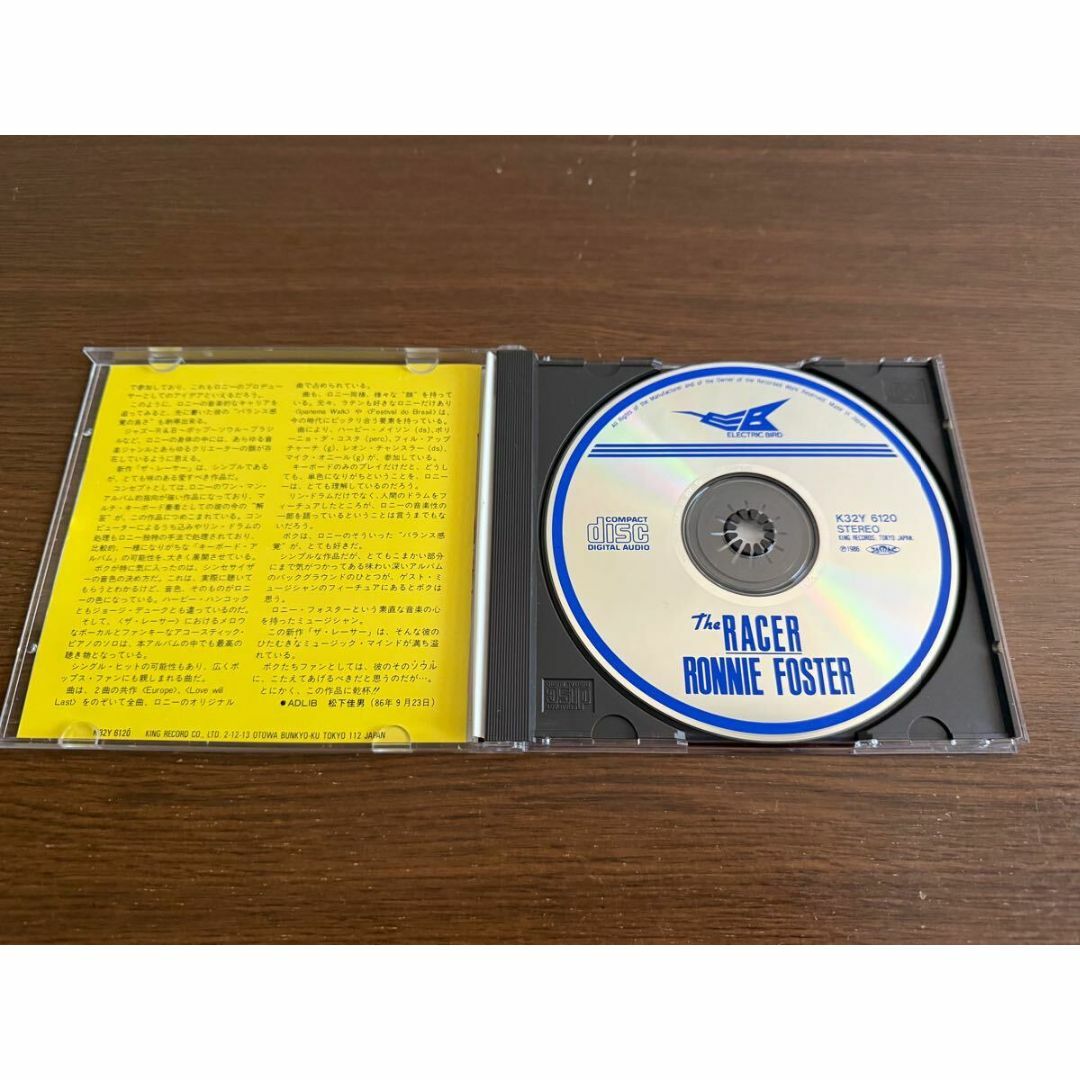 で参加しており、これもロニーのプロデュー
サーとしてのアイデアといえるだろう。
このように、ロニーの音楽的なキャリアを
追ってみると、先に書いた彼の“バランス感
覚の良さ”も納得出来る。
ジャズ―R&B―ポップ―ソウル―ブラジ
ルなど、ロニーの身体の中には、あらゆる音
楽ジャンルとあらゆるクリエーターの顔が存
在しているように思える。
新作「ザ・レーサー」は、シンプルである
が、とても味のある愛すべき作品だ。
コンセプトとしては、ロニーのワン・マン・
アルバム的指向が強い作品になっており、マ
ルチ・キーボード奏者としての彼の今の“解
答”が、この作品につめこまれている。コン
ピューターによるうち込みやリン・ドラムの
処理もロニー独特の手法で処理されており、
比較的、一様になりがちな「キーボード・ア
ルバム」の可能性を、大きく展開させている。
ボクが特に気に入ったのは、シンセサイザ
ーの音色の決め方だ。これは、実際に聴いて
もらうとわかるけど、音色、そのものがロニ
ーの色になっている。ハービー・ハンコック
ともジョージ・デュークとも違っているのだ。
そして、〈ザ・レーサー〉におけるメロウ
なボーカルとファンキーなアコースティック・
ピアノのソロは、本アルバムの中でも最高の
聴き物となっている。
シングル・ヒットの可能性もあり、広くポ
ップス・ファンにも親しまれる曲だ。
曲は、2曲の共作〈Europe〉、〈Love will
Last〉をのぞいて全曲、ロニーのオリジナル
曲で占められている。
曲も、ロニー同様、様々な“顔”を持って
いる。元々、ラテンも好きなロニーだけあり
〈Ipanema Walk〉や〈Festival do Brasil〉は、
今の時代にピッタリ合う要素を持っている。
曲により、ハービー・メイソン(ds)、ポリー
ニョ・ダ・コスタ(perc)、フィル・アップ
チャーチ(g)、レオン・チャンスラー(ds)、
マイク・オニール(g)が、参加している。
キーボードのみのプレイだけだと、どうし
ても、単色になりがちということを、ロニー
ーは、とても理解しているのだろう。
リン・ドラムだけでなく、人間のドラムをフ
ィーチュアしたところが、ロニーの音楽性の
一部を語っているということは言うまでもな
いだろう。
ボクは、ロニーのそういった“バランス感
覚”が、とても好きだ。
シンプルな作品だが、とてもこまかい部分
にまで気がつかってある味わい深いアルバム
のバックグラウンドのひとつが、ゲスト・ミ
ュージシャンのフィーチュアにあるとボクは
思う。
ロニー・フォスターという素直な音楽の心
を持ったミュージシャン。
この新作「ザ・レーサー」は、そんな彼の
ひたむきなミュージック・マインドが満ち溢
れている。
ボクたちファンとしては、彼のそのソウル
に、こたえてあげるべきだと思うのだが…。
とにかく、この作品に乾杯!!
●ADLIB 松下佳男(86年9月23日)
K32Y 6120 KING RECORD CO., LTD. 2-12-13 OTOWA BUNKYO-KU TOKYO 112 JAPAN
All Rights of the Manufacturer and of the Owner of the Recorded Work Reserved. Made in Japan.
EB
ELECTRIC BIRD
COMPACT
disc
DIGITAL AUDIO
K32Y 6120
STEREO
KING RECORDS, TOKYO JAPAN.
Ⓟ1986 JASRAC
The RACER
RONNIE FOSTER